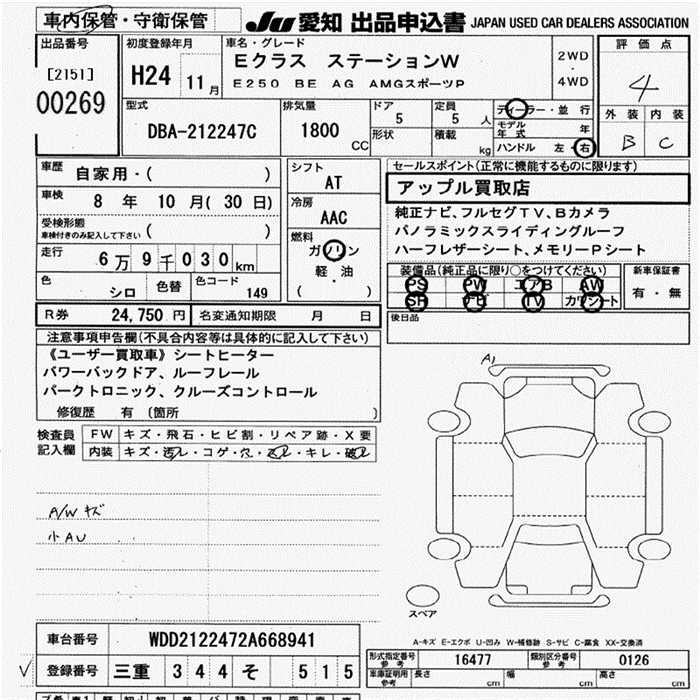 車内保管・守衛保管
JU 愛知 出品申込書 JAPAN USED CAR DEALERS ASSOCIATION
出品番号
[2151]
00269
初度登録年月
H24 11 月
車名・グレード
Eクラス ステーションW
E250 BE AG AMGスポーツP
2WD
・
4WD
評価点
4
外装 内装
B C
型式
DBA-212247C
排気量
1800 CC
ドア
5
定員
5 人
形状
積載
kg
ディーラー・並行
モデル年式 年
ハンドル 左・右
車歴 自家用・( )
車検 8 年 10 月 (30 日)
受検形態
車検付きのみ記入して下さい ( )
走行 6万9千030km
色 シロ 色替 色コード 149
シフト
AT
冷房
AAC
燃料
ガソリン
軽・油
( )
セールスポイント(正常に機能するものに限ります)
アップル買取店
純正ナビ、フルセグTV、Bカメラ
パノラミックスライディングルーフ
ハーフレザーシート、メモリーPシート
装備品(純正品に限り○をつけてください)
PS PW エアB AW
SR ナビ TV カワシート
新車保証書
有・無
後日品
R券 24,750 円 名変通知期限 月 日
注意事項申告欄(不具合内容等は具体的に記入して下さい)
《ユーザー買取車》シートヒーター
パワーバックドア、ルーフレール
パークトロニック、クルーズコントロール
修復歴 有 〔箇所 〕
検査員
記入欄
FW キズ・飛石・ヒビ割・リペア跡・X要
内装 キズ・汚レ・コゲ・穴・スレ・キレ・破レ
A/W キズ
小AU
A1
スペア
A-キズ E-エクボ U-凹み W-補修跡 S-サビ C-腐食 XX-交換済
車台番号 WDD2122472A668941
登録番号 三重 344 そ 515
形式指定番号
参考
16477
類別区分番号
参考
0126
車庫証明用
参考
長さ cm 幅 cm 高さ cm